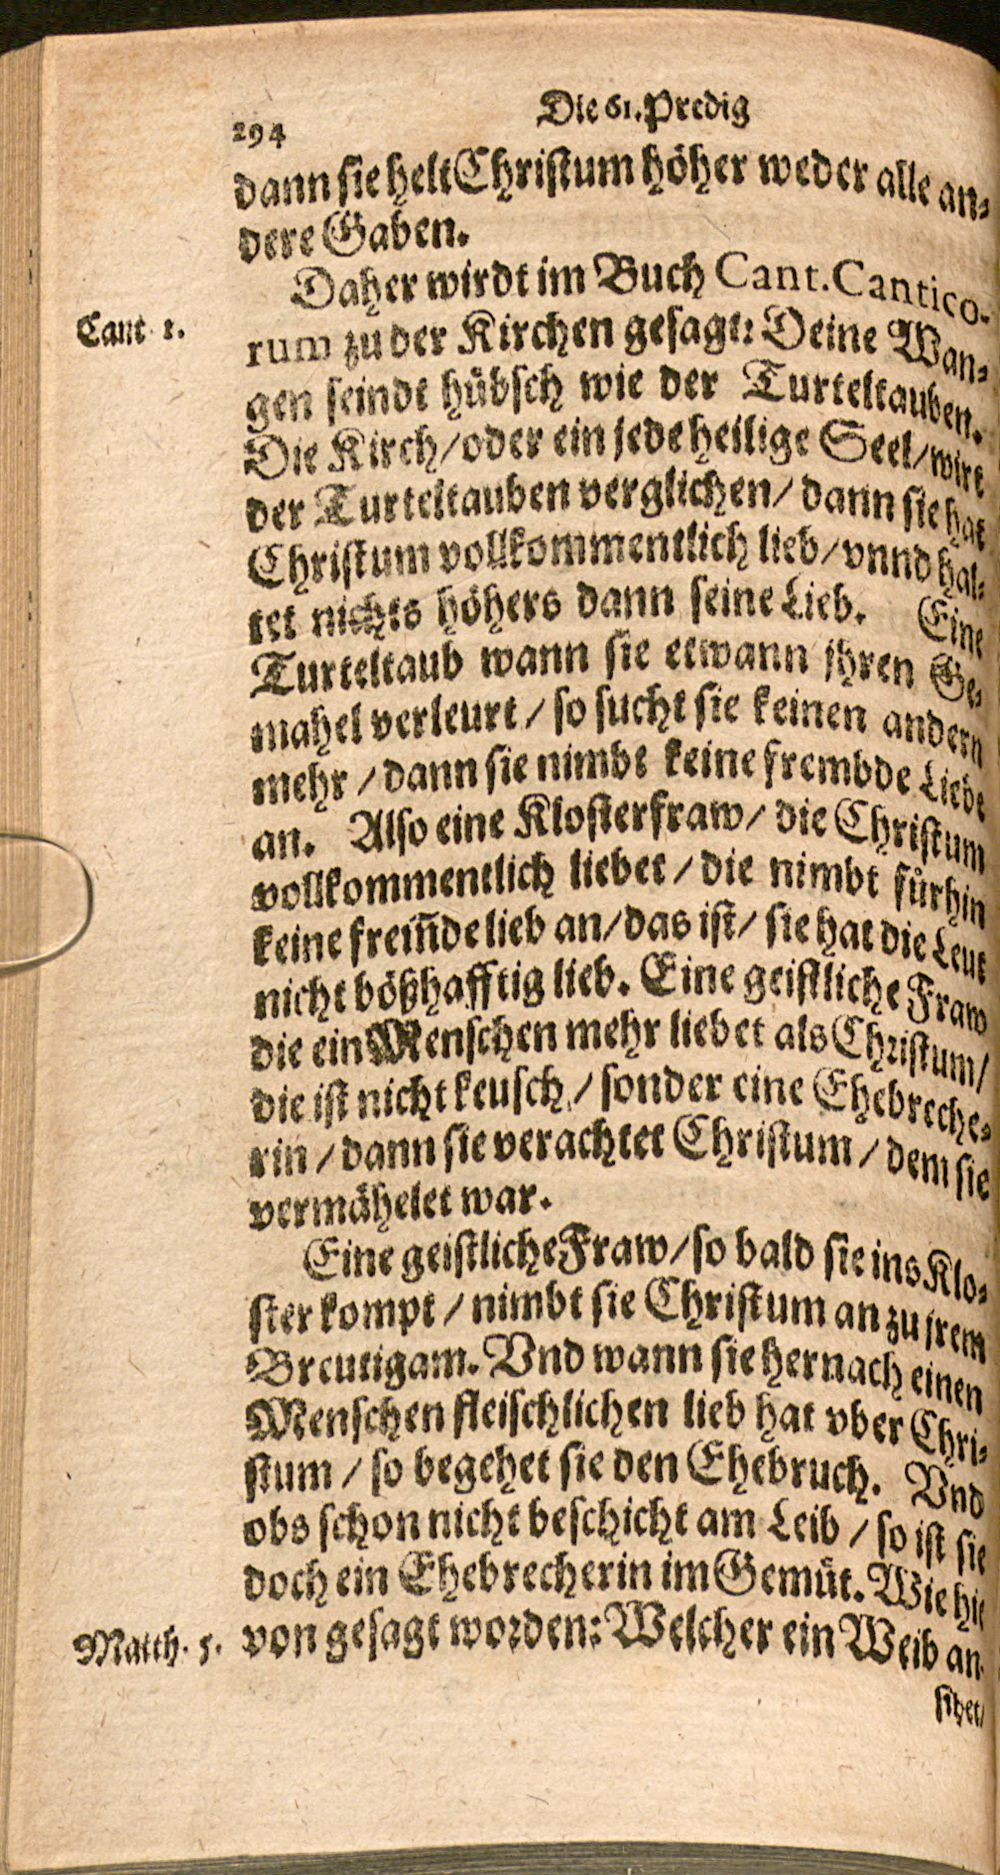 294
Die 61. Predig
dann sie helt Christum höher weder alle an-
dere Gaben.
Daher wirdt im Buch Cant. Cantico-
Cant 1.
rum zu der Kirchen gesagt: Deine Wan-
gen seindt hübsch wie der Turteltauben.
Die Kirch/oder ein jede heilige Seel/wirt
der Turteltauben verglichen/ dann sie hat
Christum vollkommentlich lieb/vnnd hal-
tet nichts höhers dann seine Lieb. Eine
Turteltaub wann sie etwann jhren Ge-
mahel verleurt / so sucht sie keinen andern
mehr / dann sie nimbt keine frembde Liebe
an. Also eine Klosterfraw/ die Christum
vollkommentlich liebet / die nimbt fürhin
keine frem̃de lieb an/das ist/ sie hat die Leut
nicht bößhafftig lieb. Eine geistliche Fraw
die ein Menschen mehr liebet als Christum/
die ist nicht keusch / sonder eine Ehebreche-
rin / dann sie verachtet Christum / dem sie
vermähelet war.
Eine geistliche Fraw/so bald sie ins Klo-
ster kompt / nimbt sie Christum an zu jrem
Breutigam. Vnd wann sie hernach einen
Menschen fleischlichen lieb hat vber Chri-
stum / so begehet sie den Ehebruch. Vnd
obs schon nicht beschicht am Leib / so ist sie
doch ein Ehebrecherin im Gemüt. Wie hie
Matth. 5.
von gesagt worden: Welcher ein Weib an-
sihet/